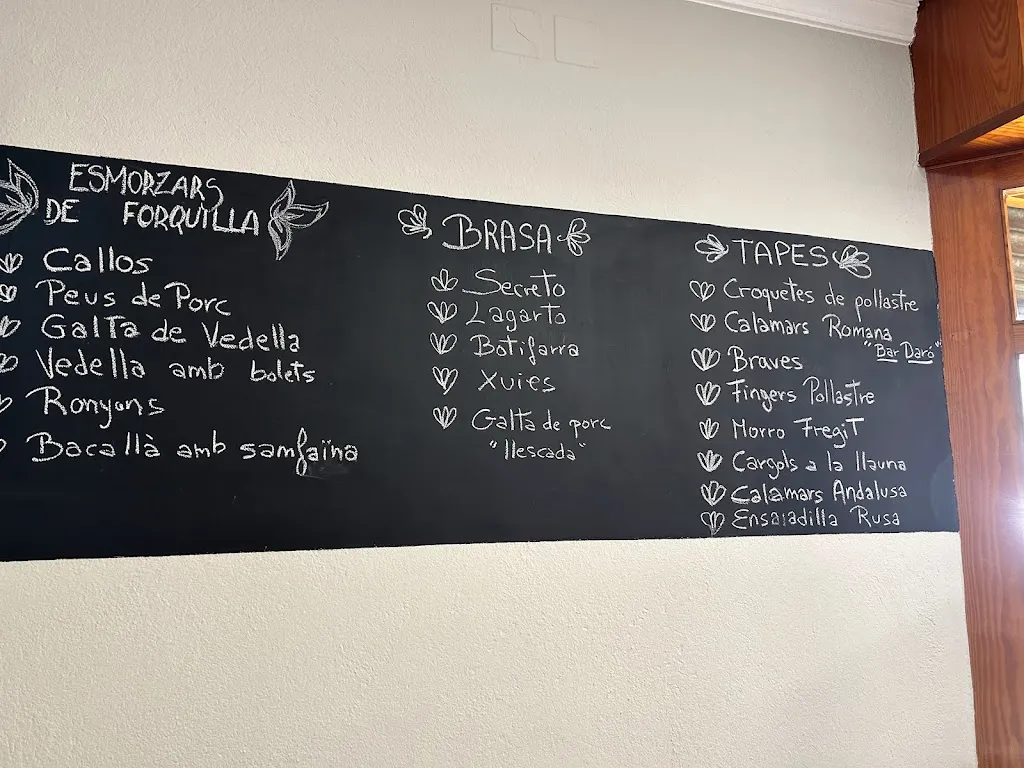 ESMORZARS
DE FORQUILLA
Callos
Peus de Porc
Galta de Vedella
Vedella amb bolets
Ronyons
Bacallà amb samfaïna
BRASA
Secreto
Lagarto
Botifarra
Xuies
Galta de porc
"llescada"
TAPES
Croquetes de pollastre
Calamars Romana
"Bar Daró"
Braves
Fingers Pollastre
Morro Fregit
Cargols a la llauna
Calamars Andalusa
Ensaladilla Rusa